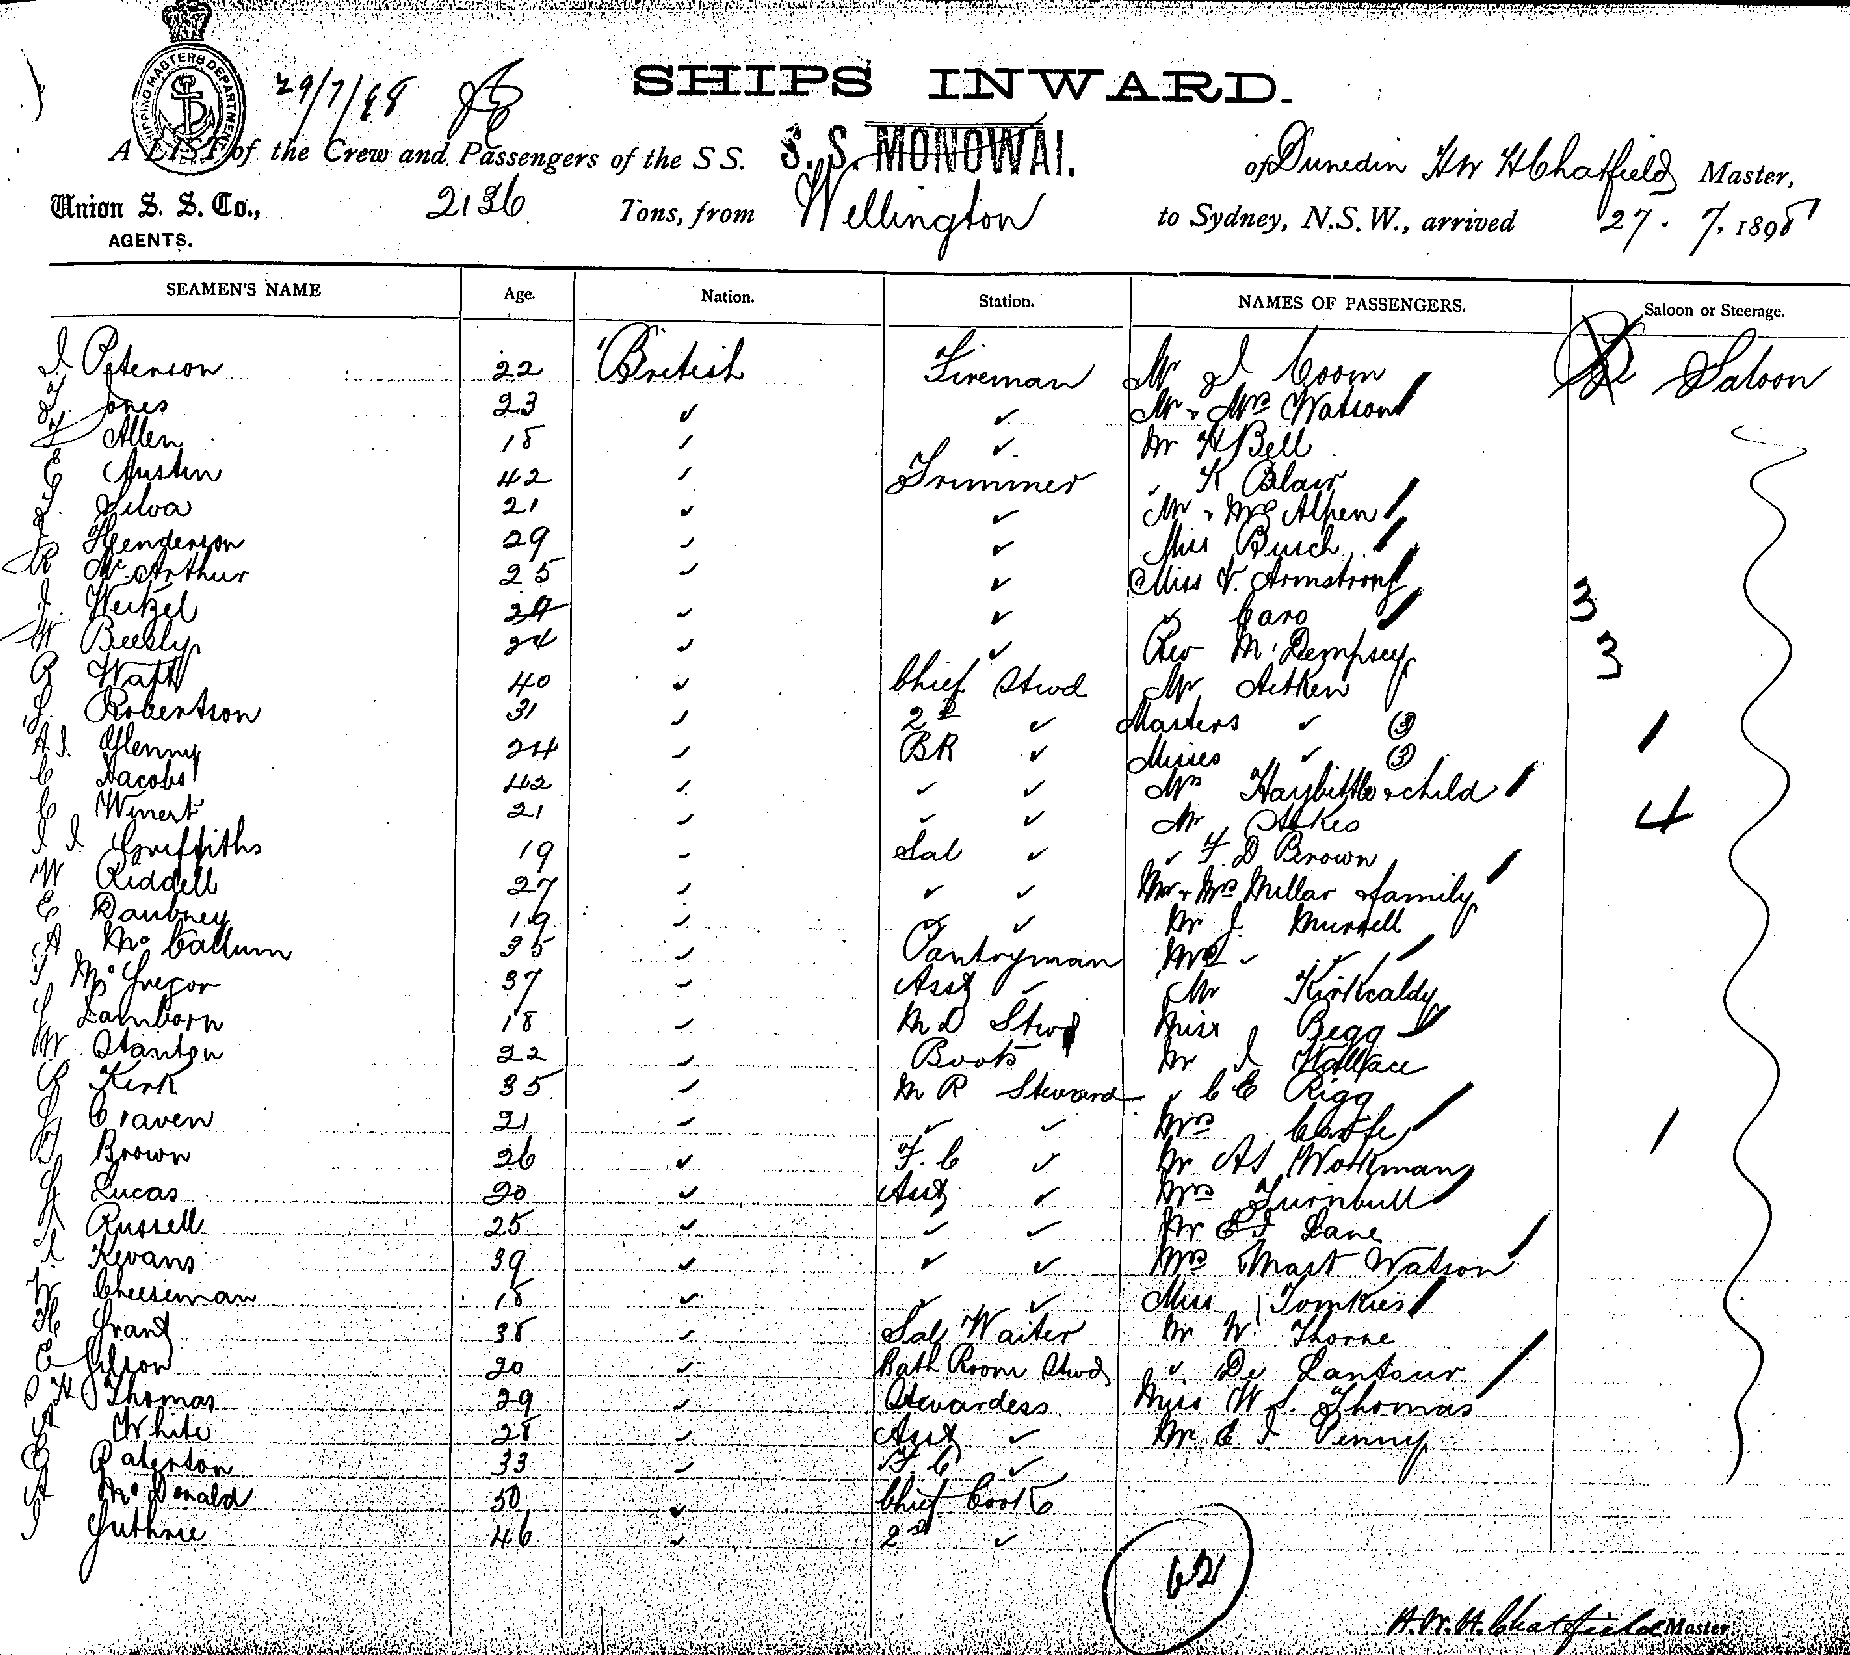 SHIPPING MASTERS DEPARTMENT
29/7/98
SHIPS INWARD.
A LIST of the Crew and Passengers of the S S. S. S. MONOWAI. of Dunedin H W H Chatfield Master,
Union S. S. Co., AGENTS. 2136 Tons, from Wellington to Sydney, N.S.W., arrived 27. 7. 1898
SEAMEN'S NAME Age. Nation. Station. NAMES OF PASSENGERS. Saloon or Steerage.
J Peterson 22 British Fireman Mr J Coom Saloon
Jones 23 ✓ ✓ Mr & Mrs Watson
Allen 18 ✓ ✓ Mr H Bell
E Austin 42 ✓ Trimmer ✓ K Blair
Silva 21 ✓ ✓ Mr & Mrs Alpen
Henderson 29 ✓ ✓ Miss Busch
R McArthur 25 ✓ ✓ Miss V. Armstrong
J. Weitzel 29 ✓ ✓ ✓ Caro 3
W Beesly 24 ✓ ✓ Rev McDempsey 3
R Watt 40 ✓ Chief Stwd Mr Aitken
Robertson 31 ✓ 2nd ✓ Masters ✓ (3) 1
A J. Glenny 24 ✓ BR ✓ Misses ✓ (3)
C Jacobs 42 ✓ ✓ ✓ Mrs Haybittle & child
C Winert 21 ✓ ✓ ✓ Mr Stokes 4
J J Griffiths 19 ✓ Sal ✓ ✓ F. D Brown
W Riddell 27 ✓ ✓ ✓ Mr & Mrs Millar & family
E Daubney 19 ✓ ✓ ✓ Mr J. Murrell
A McCallum 35 ✓ Pantryman Mrs ✓ ✓
McGregor 37 ✓ Asst ✓ Mr Kirkcaldy
Lamborn 18 ✓ M D Stwd Miss Begg
W Stanton 22 ✓ Boots Mr J Wallace
Kirk 35 ✓ M R Steward ✓ C E Rigg
Craven 21 ✓ ✓ ✓ Mrs 1
Brown 26 ✓ F. C ✓ Mr A S Workman
Lucas 20 ✓ Asst ✓ Mrs Turnbull
Russell 25 ✓ ✓ ✓ Mr E J Lane
Kevans 39 ✓ ✓ ✓ Mrs & Mast Watson
W Cheeseman 18 ✓ ✓ ✓ Miss Tomkies
H Grant 38 ✓ Sal Waiter Mr W Thorne
E Gilson 20 ✓ Bath Room Stwd ✓ De Lantour
Thomas 29 ✓ Stewardess Miss W S. Thomas
White 28 ✓ Asst ✓ Mr E J Penny
E Paterson 33 ✓ F C ✓
A McDonald 50 ✓ Chief Cook
J Guthrie 46 ✓ 2nd ✓
62
H. W. H. Chatfield Master